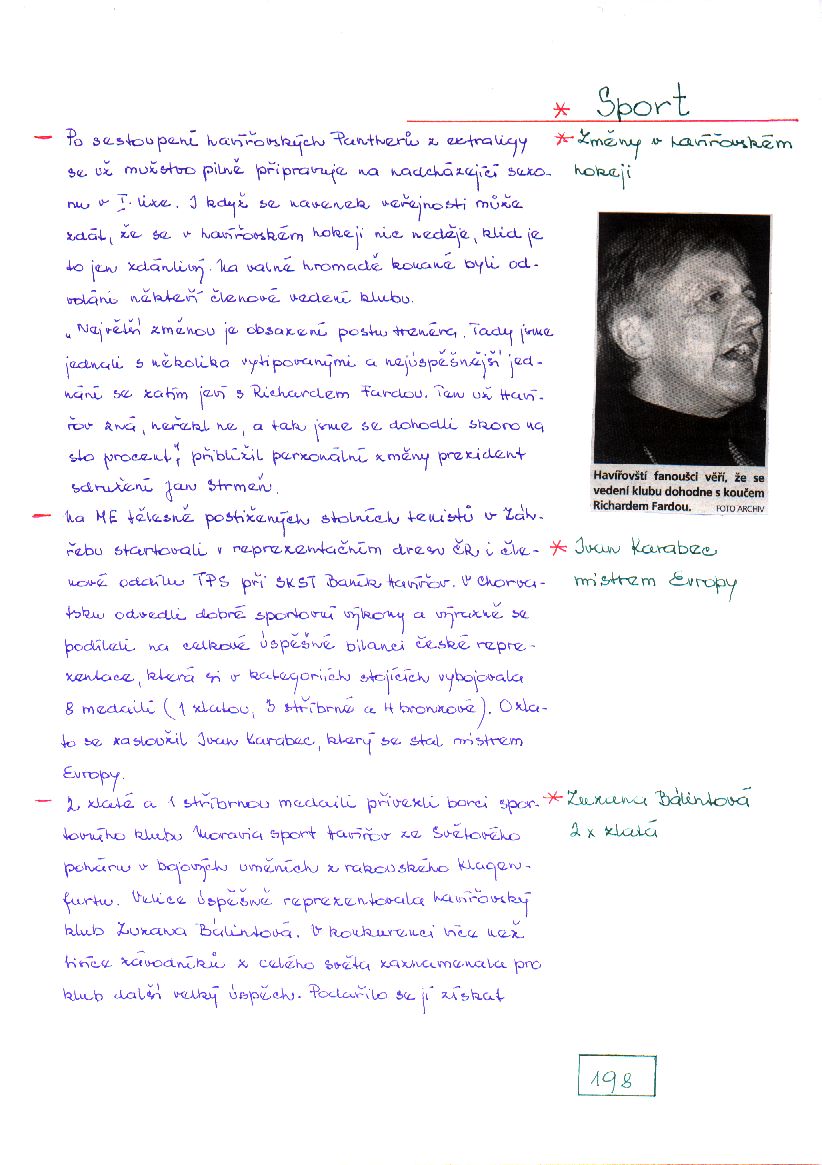 * Sport
– Po sestoupení havířovských Pantherů z extraligy
* Změny v havířovském
hokeji
se už mužstvo pilně připravuje na nadcházející sezo-
nu v I. lize. I když se navenek veřejnosti může
zdát, že se v havířovském hokeji nic neděje, klid je
to jen zdánlivý. Na valné hromadě konané byli od-
voláni někteří členové vedení klubu.
„Největší změnou je obsazení postu trenéra. Tady jsme
jednali s několika vytipovanými a nejúspěšnější jed-
nání se zatím jeví s Richardem Fardou. Ten už Haví-
řov zná, neřekl ne, a tak jsme se dohodli skoro na
sto procent“, přiblížil personální změny prezident
sdružení Jan Strmeň.
Havířovští fanoušci věří, že se
vedení klubu dohodne s koučem
Richardem Fardou. FOTO ARCHIV
– Na ME tělesně postižených stolních tenistů v Záh-
řebu startovali v reprezentačním dresu ČR i čle-
* Ivan Karabec
mistrem Evropy
nové oddílu TPS při SKST Baník Havířov. V Chorva-
tsku odvedli dobré sportovní výkony a výrazně se
podíleli na celkové úspěšné bilanci české repre-
zentace, která si v kategoriích stojících vybojovala
8 medailí (1 zlatou, 3 stříbrné a 4 bronzové). O zla-
to se zasloužil Ivan Karabec, který se stal mistrem
Evropy.
– 2 zlaté a 1 stříbrnou medaili přivezli borci spor-
* Zuzana Bálintová
2 x zlatá
tovního klubu Moravia sport Havířov ze Světového
poháru v bojových uměních z rakouského Klagen-
furtu. Velice úspěšně reprezentovala havířovský
klub Zuzana Bálintová. V konkurenci více než
tisíce závodníků z celého světa zaznamenala pro
klub další velký úspěch. Podařilo se jí získat
198